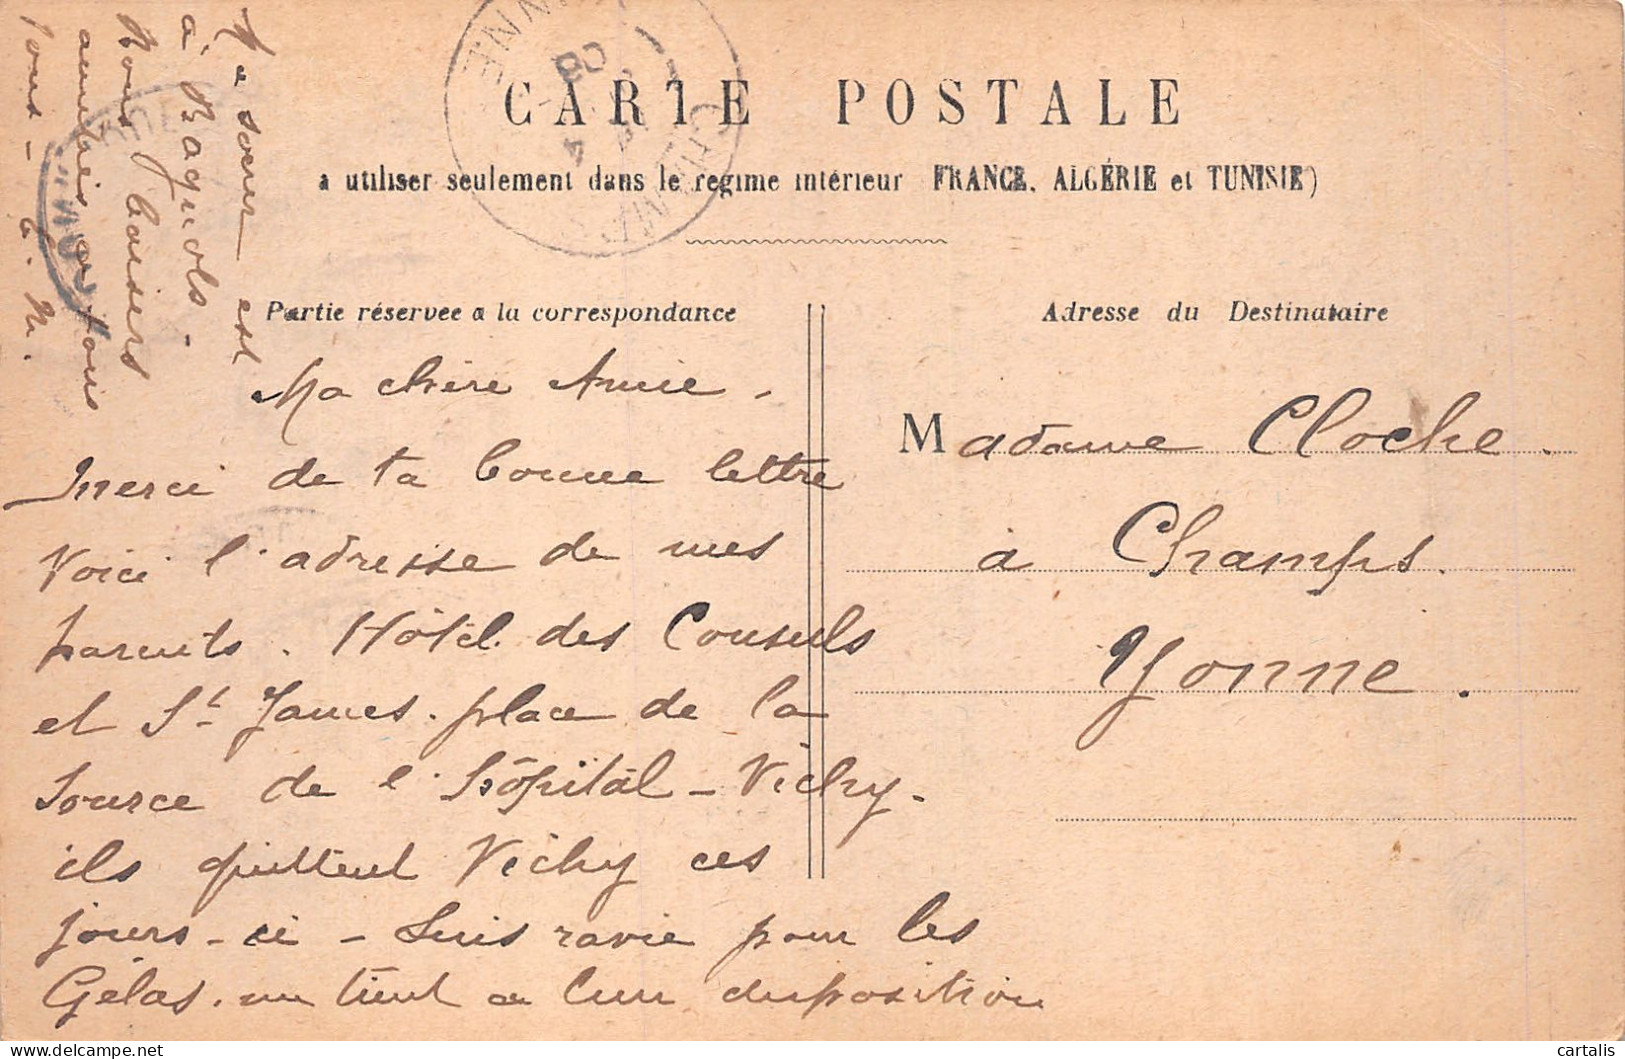 CARTE POSTALE
à utiliser seulement dans le régime intérieur FRANCE, ALGÉRIE et TUNISIE)
Partie réservée à la correspondance
Adresse du Destinataire
Ma chère Amie.
Merci de ta bonne lettre
Voici l'adresse de mes
parents. Hôtel des Consuls
et St James. place de la
Source de l'hôpital - Vichy.
ils quittent Vichy ces
jours-ci - Suis ravie pour les
Gélas. un tient a leur disposition
Madame Cloche.
à Champs.
Yonne.
Ma soeur est
à Baguols.
Nous baisers
amitiés à tous
Tous - C. M.
YONNE
08
4
cartalis